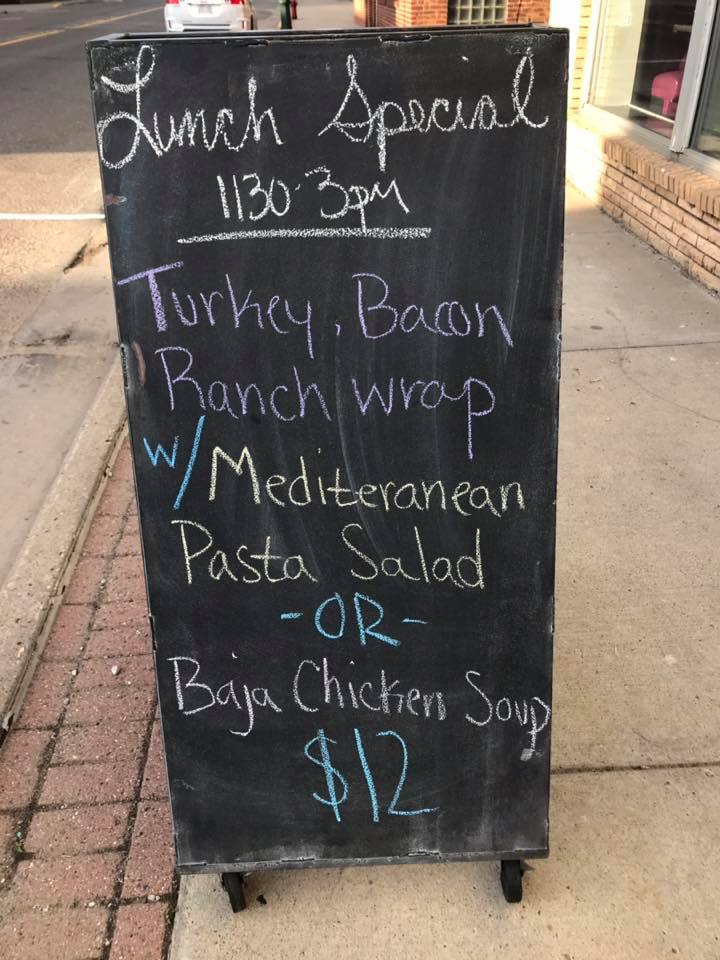 Lunch Special
1130-3pm
Turkey, Bacon
Ranch wrap
w/Mediteranean
Pasta Salad
-OR-
Baja Chicken Soup
$12